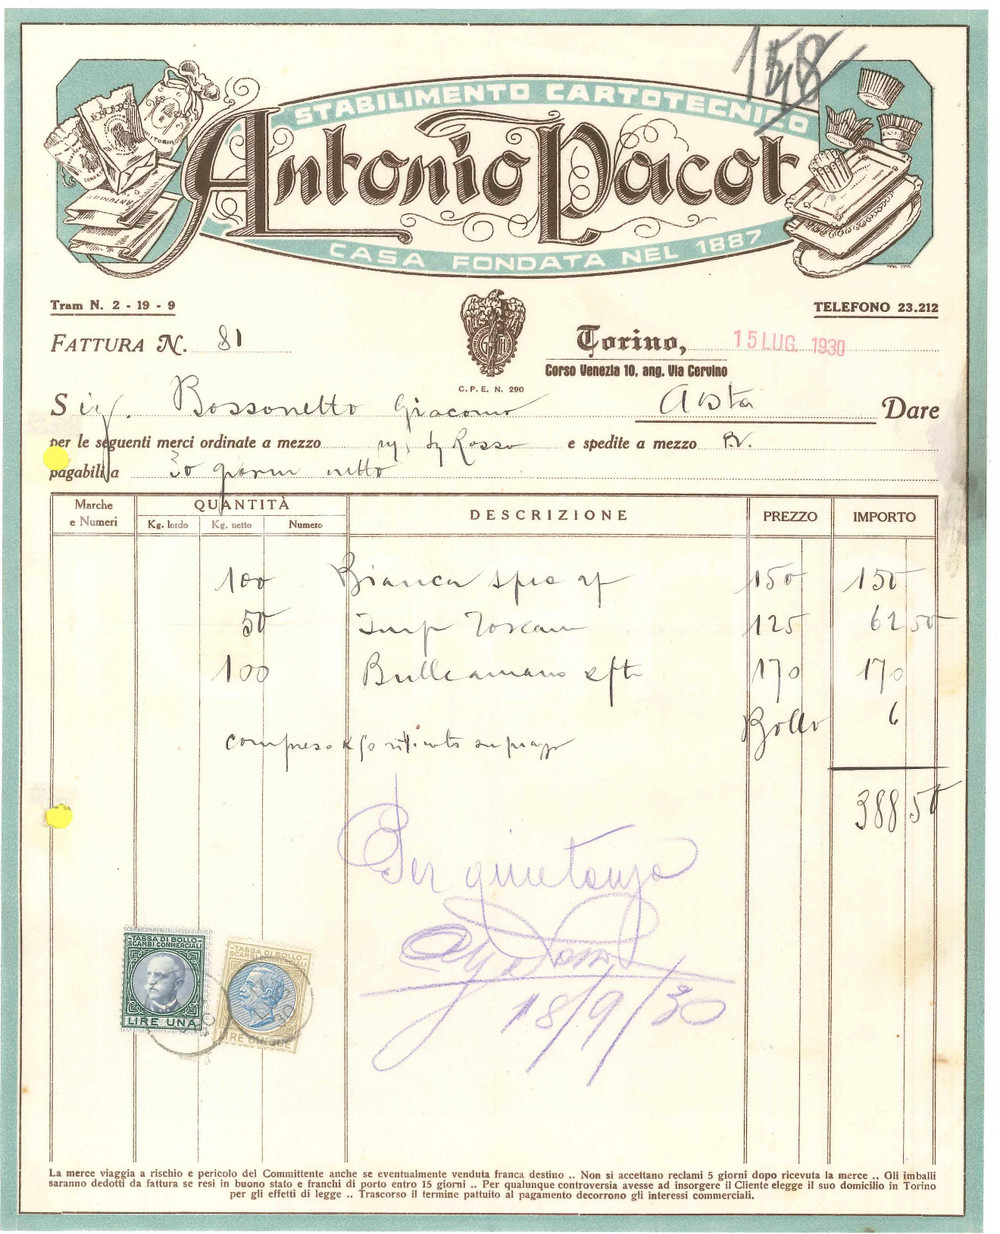 158
STABILIMENTO CARTOTECNICO
Antonio Pacot
CASA FONDATA NEL 1887
Tram N. 2 - 19 - 9
TELEFONO 23.212
C. P. E. N. 290
FATTURA N. 81
Torino, 15 LUG. 1930
Corso Venezia 10, ang. Via Cervino
Sig. Bossonetto Giacomo Aosta Dare
per le seguenti merci ordinate a mezzo Rosso e spedite a mezzo
pagabili a 30 giorni netto
Marche e Numeri QUANTITÀ DESCRIZIONE PREZZO IMPORTO
Kg. lordo Kg. netto Numero
100 Bianca 150 150
50 Imp Toscana 125 62 50
100 170 170
Bollo 6
compreso
388 50
Per quietanza
18/9/30
TASSA DI BOLLO
SCAMBI COMMERCIALI
LIRE UNA
TASSA DI BOLLO
SCAMBI COMMERCIALI
LIRE CINQUE
La merce viaggia a rischio e pericolo del Committente anche se eventualmente venduta franca destino .. Non si accettano reclami 5 giorni dopo ricevuta la merce .. Gli imballi
saranno dedotti da fattura se resi in buono stato e franchi di porto entro 15 giorni .. Per qualunque controversia avesse ad insorgere il Cliente elegge il suo domicilio in Torino
per gli effetti di legge .. Trascorso il termine pattuito al pagamento decorrono gli interessi commerciali.